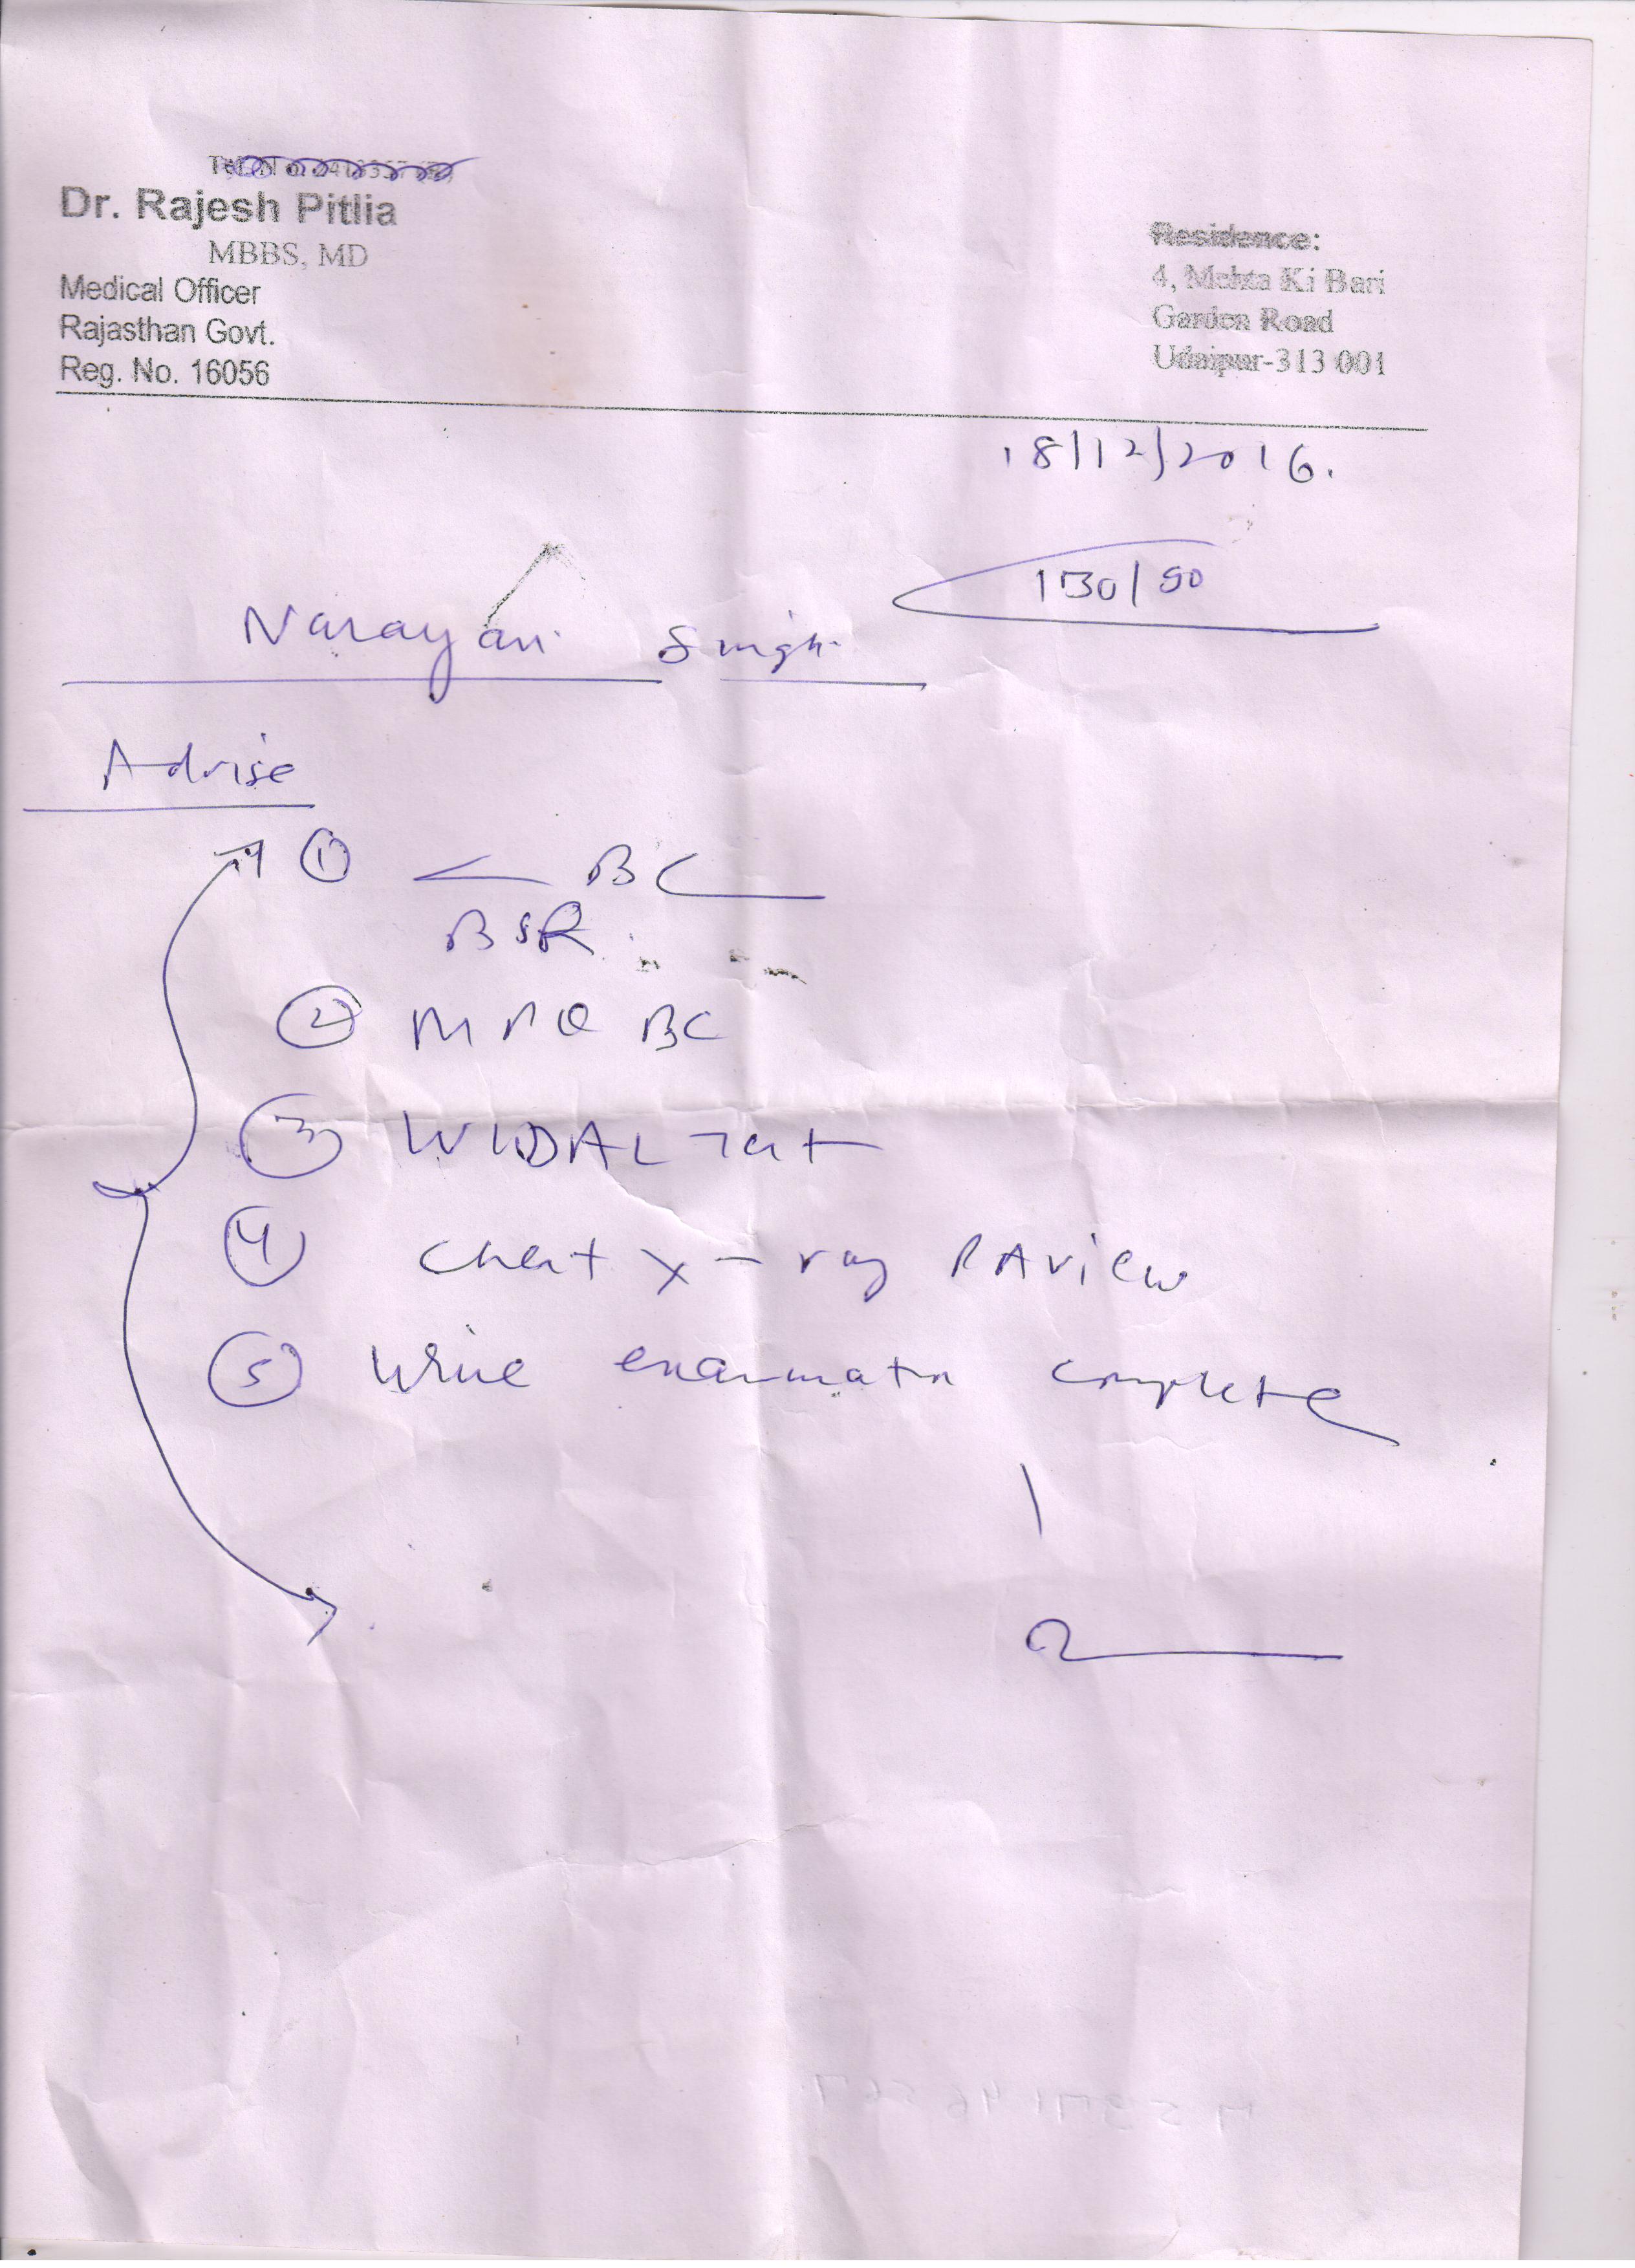 Dr. Rajesh Pitlia
MBBS, MD
Medical Officer
Rajasthan Govt.
Reg. No. 16056
Residence:
4, Mehta Ki Bari
Garden Road
Udaipur-313 001
18/12/2016.
130/90
Narayan Singh
Advise
① CBC
BSR
② MP QBC
③ WIDAL Test
④ Chest x-ray PA view
⑤ Urine examination complete